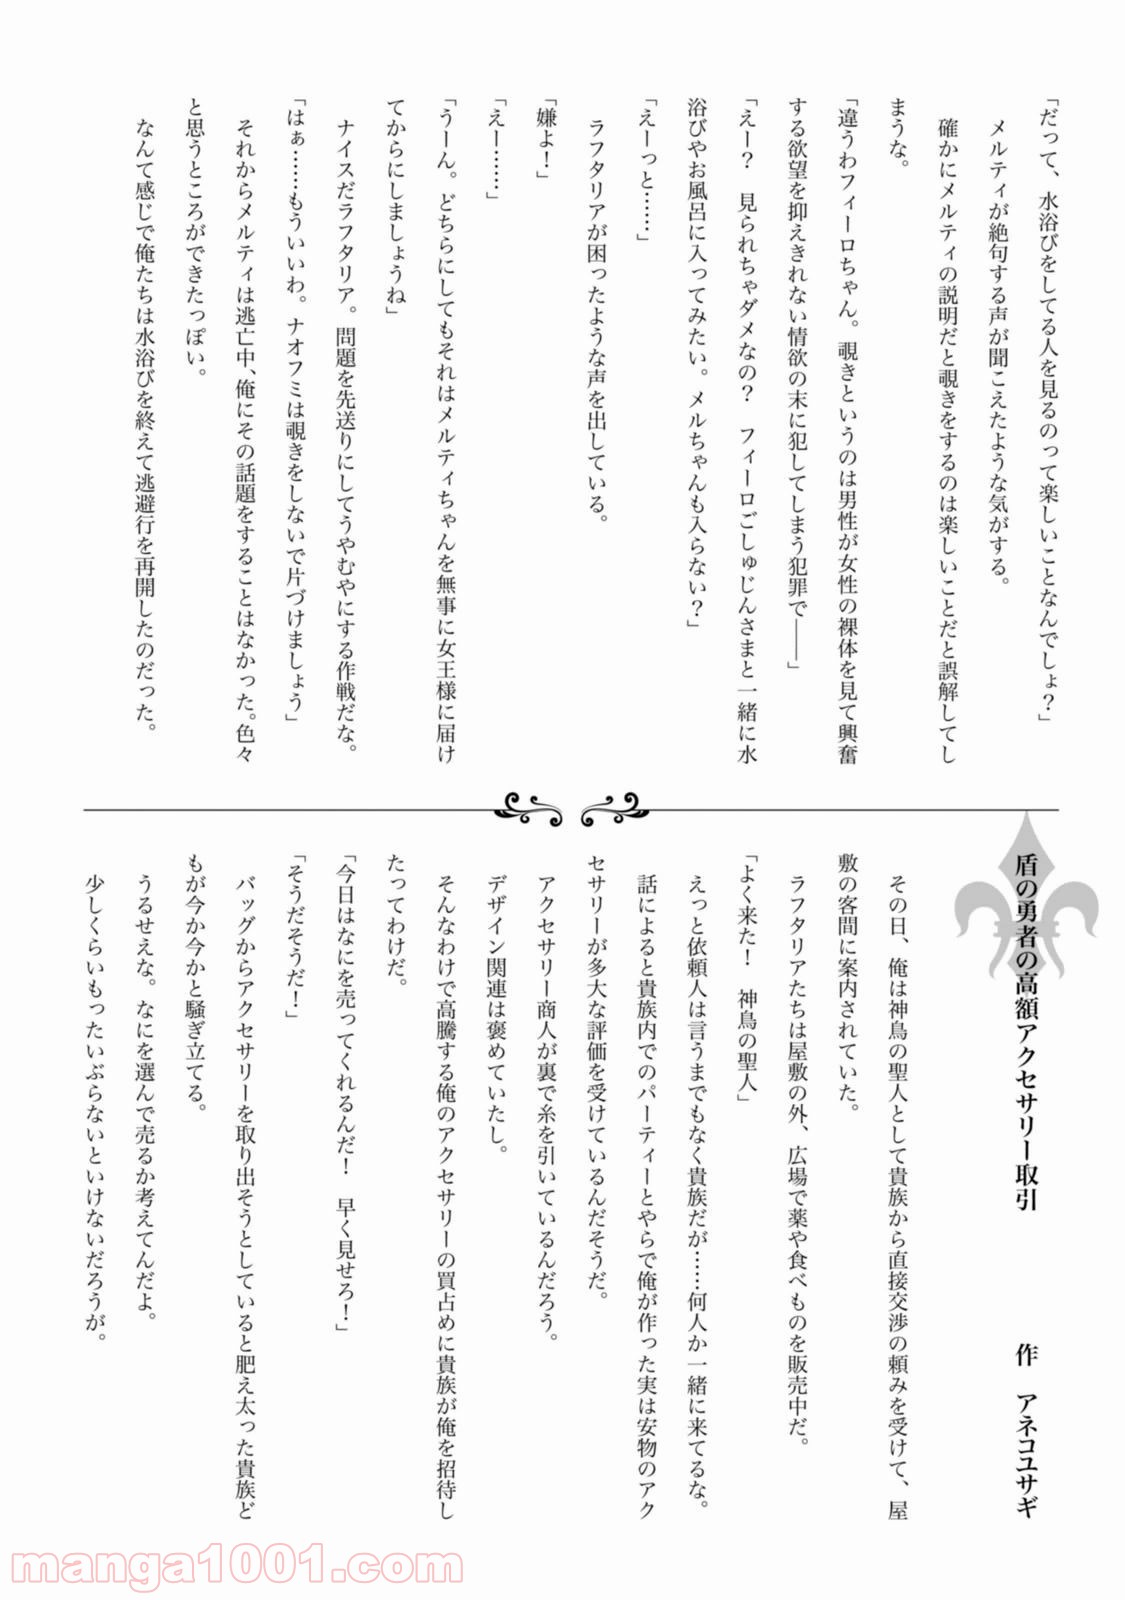 「だって、水浴びをしてる人を見るのって楽しいことなんでしょ？」
メルティが絶句する声が聞こえたような気がする。
確かにメルティの説明だと覗きをするのは楽しいことだと誤解してし
まうな。
「違うわフィーロちゃん。覗きというのは男性が女性の裸体を見て興奮
する欲望を抑えきれない情欲の末に犯してしまう犯罪で――」
「えー？　見られちゃダメなの？　フィーロごしゅじんさまと一緒に水
浴びやお風呂に入ってみたい。メルちゃんも入らない？」
「えーっと……」
ラフタリアが困ったような声を出している。
「嫌よ！」
「えー……」
「うーん。どちらにしてもそれはメルティちゃんを無事に女王様に届け
てからにしましょうね」
ナイスだラフタリア。問題を先送りにしてうやむやにする作戦だな。
「はぁ……もういいわ。ナオフミは覗きをしないで片づけましょう」
それからメルティは逃亡中、俺にその話題をすることはなかった。色々
と思うところができたっぽい。
なんて感じで俺たちは水浴びを終えて逃避行を再開したのだった。
盾の勇者の高額アクセサリー取引　作　アネコユサギ
その日、俺は神鳥の聖人として貴族から直接交渉の頼みを受けて、屋
敷の客間に案内されていた。
ラフタリアたちは屋敷の外、広場で薬や食べものを販売中だ。
「よく来た！　神鳥の聖人」
えっと依頼人は言うまでもなく貴族だが……何人か一緒に来てるな。
話によると貴族内でのパーティーとやらで俺が作った実は安物のアク
セサリーが多大な評価を受けているんだそうだ。
アクセサリー商人が裏で糸を引いているんだろう。
デザイン関連は褒めていたし。
そんなわけで高騰する俺のアクセサリーの買占めに貴族が俺を招待し
たってわけだ。
「今日はなにを売ってくれるんだ！　早く見せろ！」
「そうだそうだ！」
バッグからアクセサリーを取り出そうとしていると肥え太った貴族ど
もが今か今かと騒ぎ立てる。
うるせえな。なにを選んで売るか考えてんだよ。
少しくらいもったいぶらないといけないだろうが。
manga1001.com